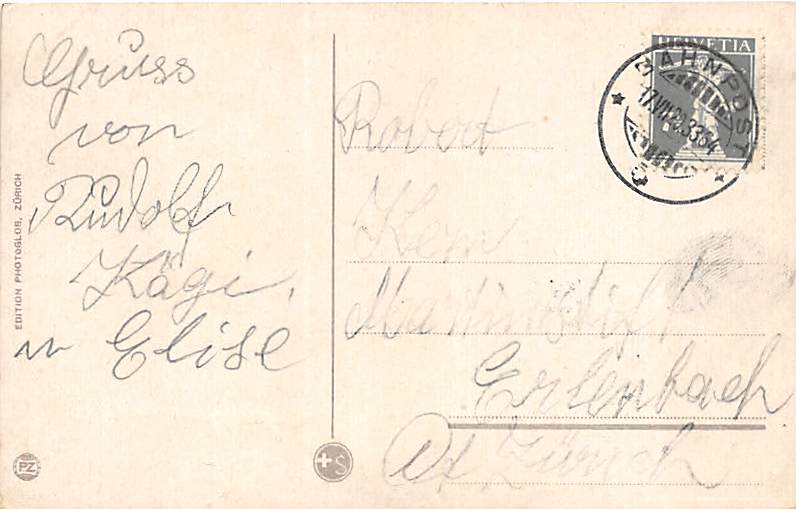 Gruss
von
Rudolf
Kägi,
u Elise
EDITION PHOTOGLOB, ZÜRICH
PZ
S
HELVETIA
BAHNPOST
17.VII.2 3364
5
Robert
Kern
Martinstift
Erlenbach
Kt. Zürich